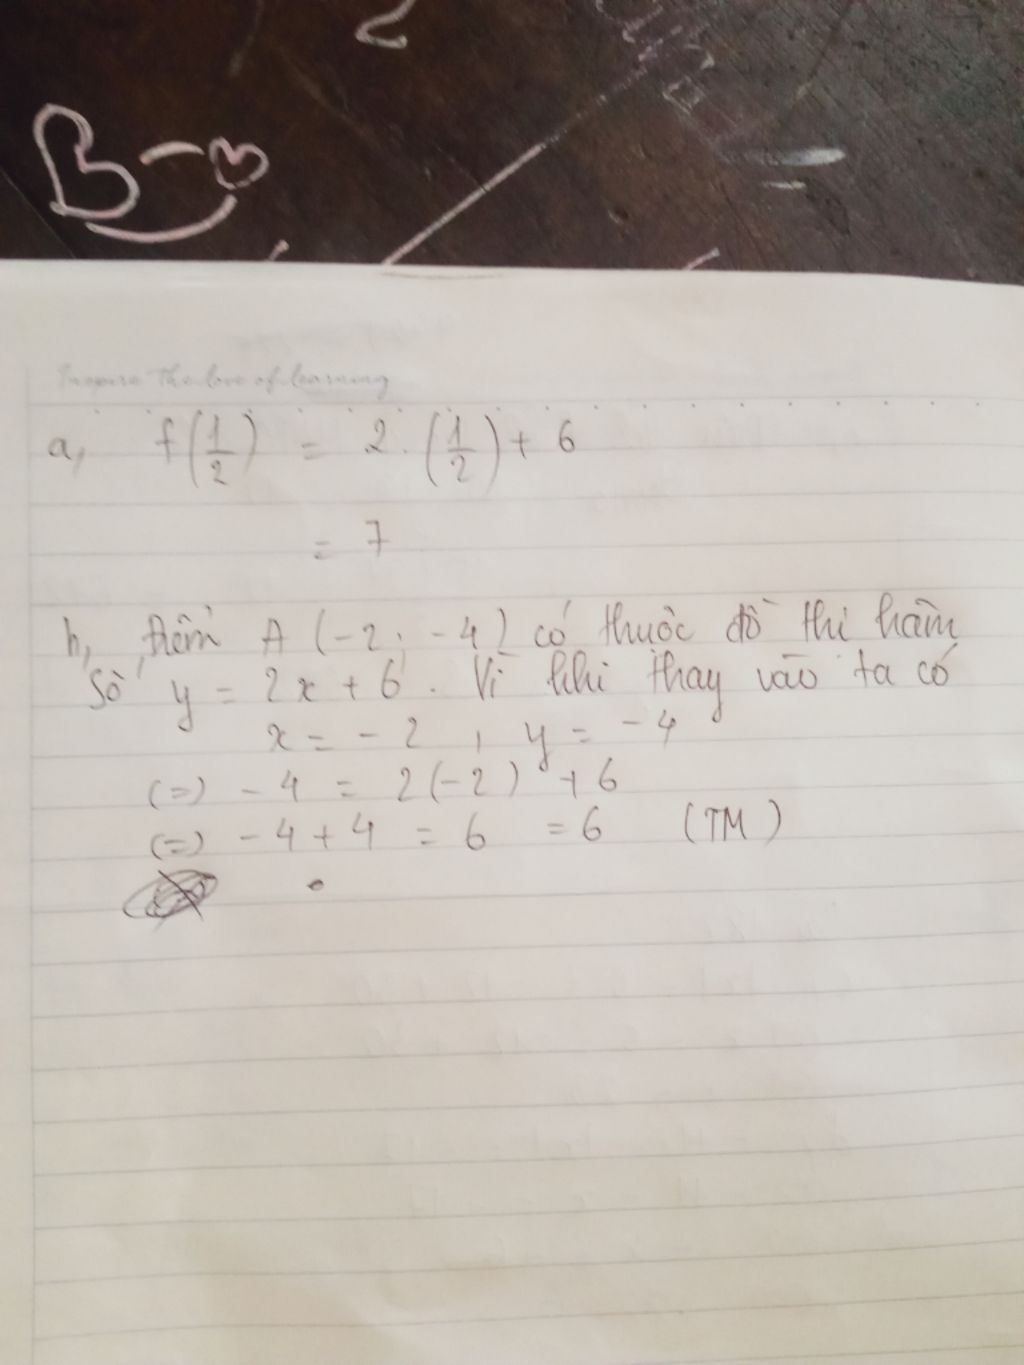 2
B - ♡
Inspire The love of learning
a, f(1/2) = 2 . (1/2) + 6
= 7
b, điểm A (-2; -4) có thuộc đồ thị hàm
số y = 2x + 6 . Vì khi thay vào ta có
x = -2 , y = -4
(=) -4 = 2(-2) + 6
(=) -4 + 4 = 6 = 6 (TM)